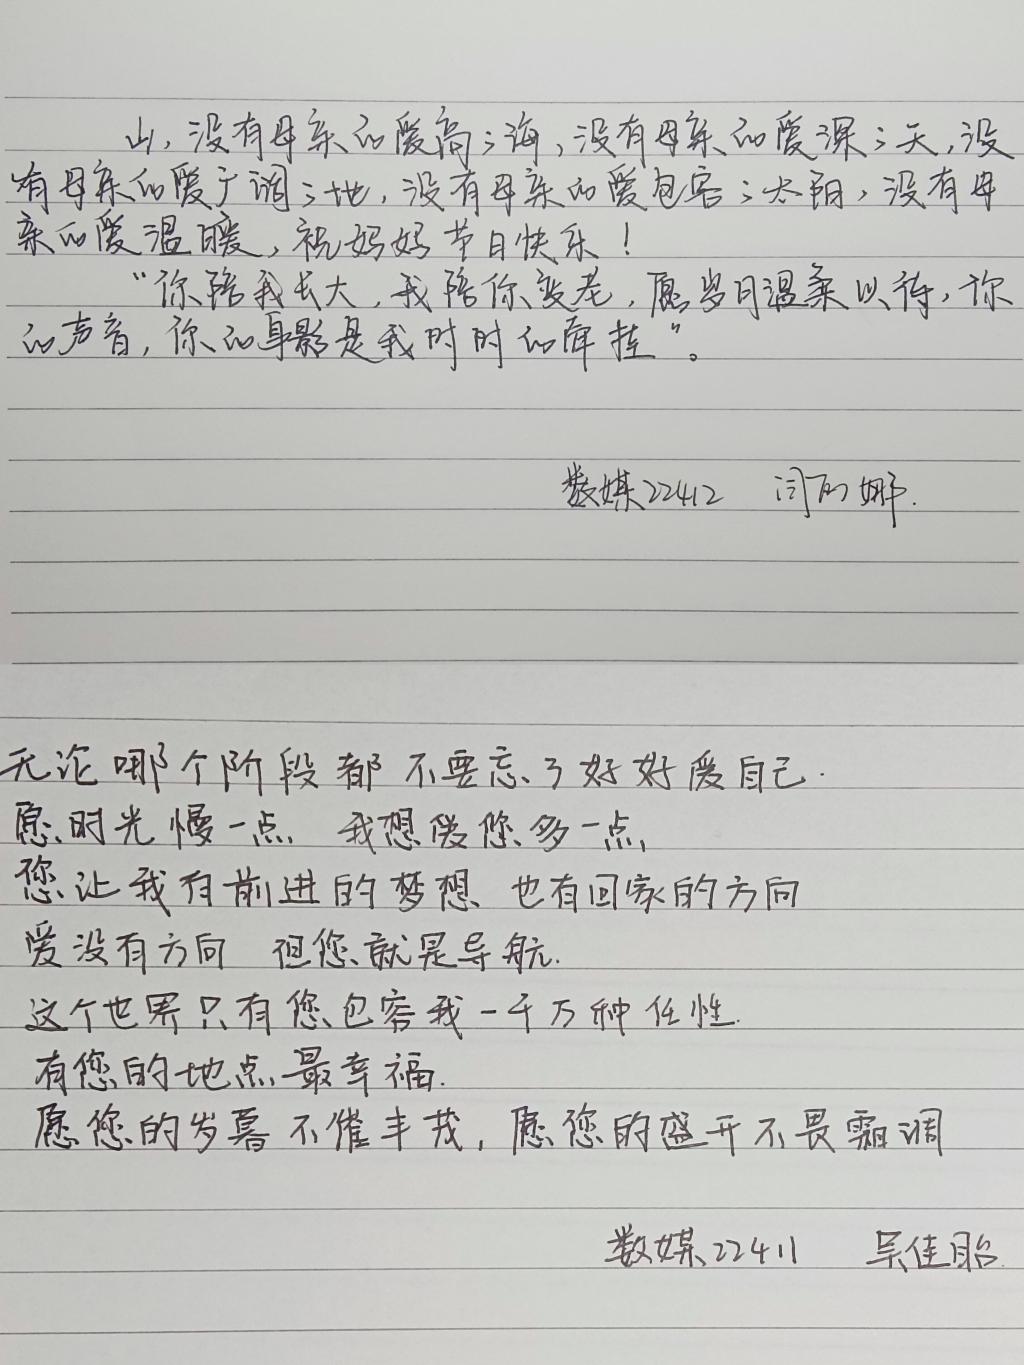 山，没有母亲的爱高；海，没有母亲的爱深；天，没
有母亲的爱广阔；地，没有母亲的爱包容；太阳，没有母
亲的爱温暖，祝妈妈节日快乐！
“你陪我长大，我陪你变老，愿岁月温柔以待，你
的声音，你的身影是我时时的牵挂”。
数媒22412 闫丽娜.
无论哪个阶段都不要忘了好好爱自己.
愿时光慢一点 我想爱您多一点
您让我有前进的梦想 也有回家的方向
爱没有方向 但您就是导航.
这个世界只有您包容我一千万种任性.
有您的地点最幸福.
愿您的岁暮不催丰茂，愿您的盛开不畏霜凋
数媒22411 吴佳眙